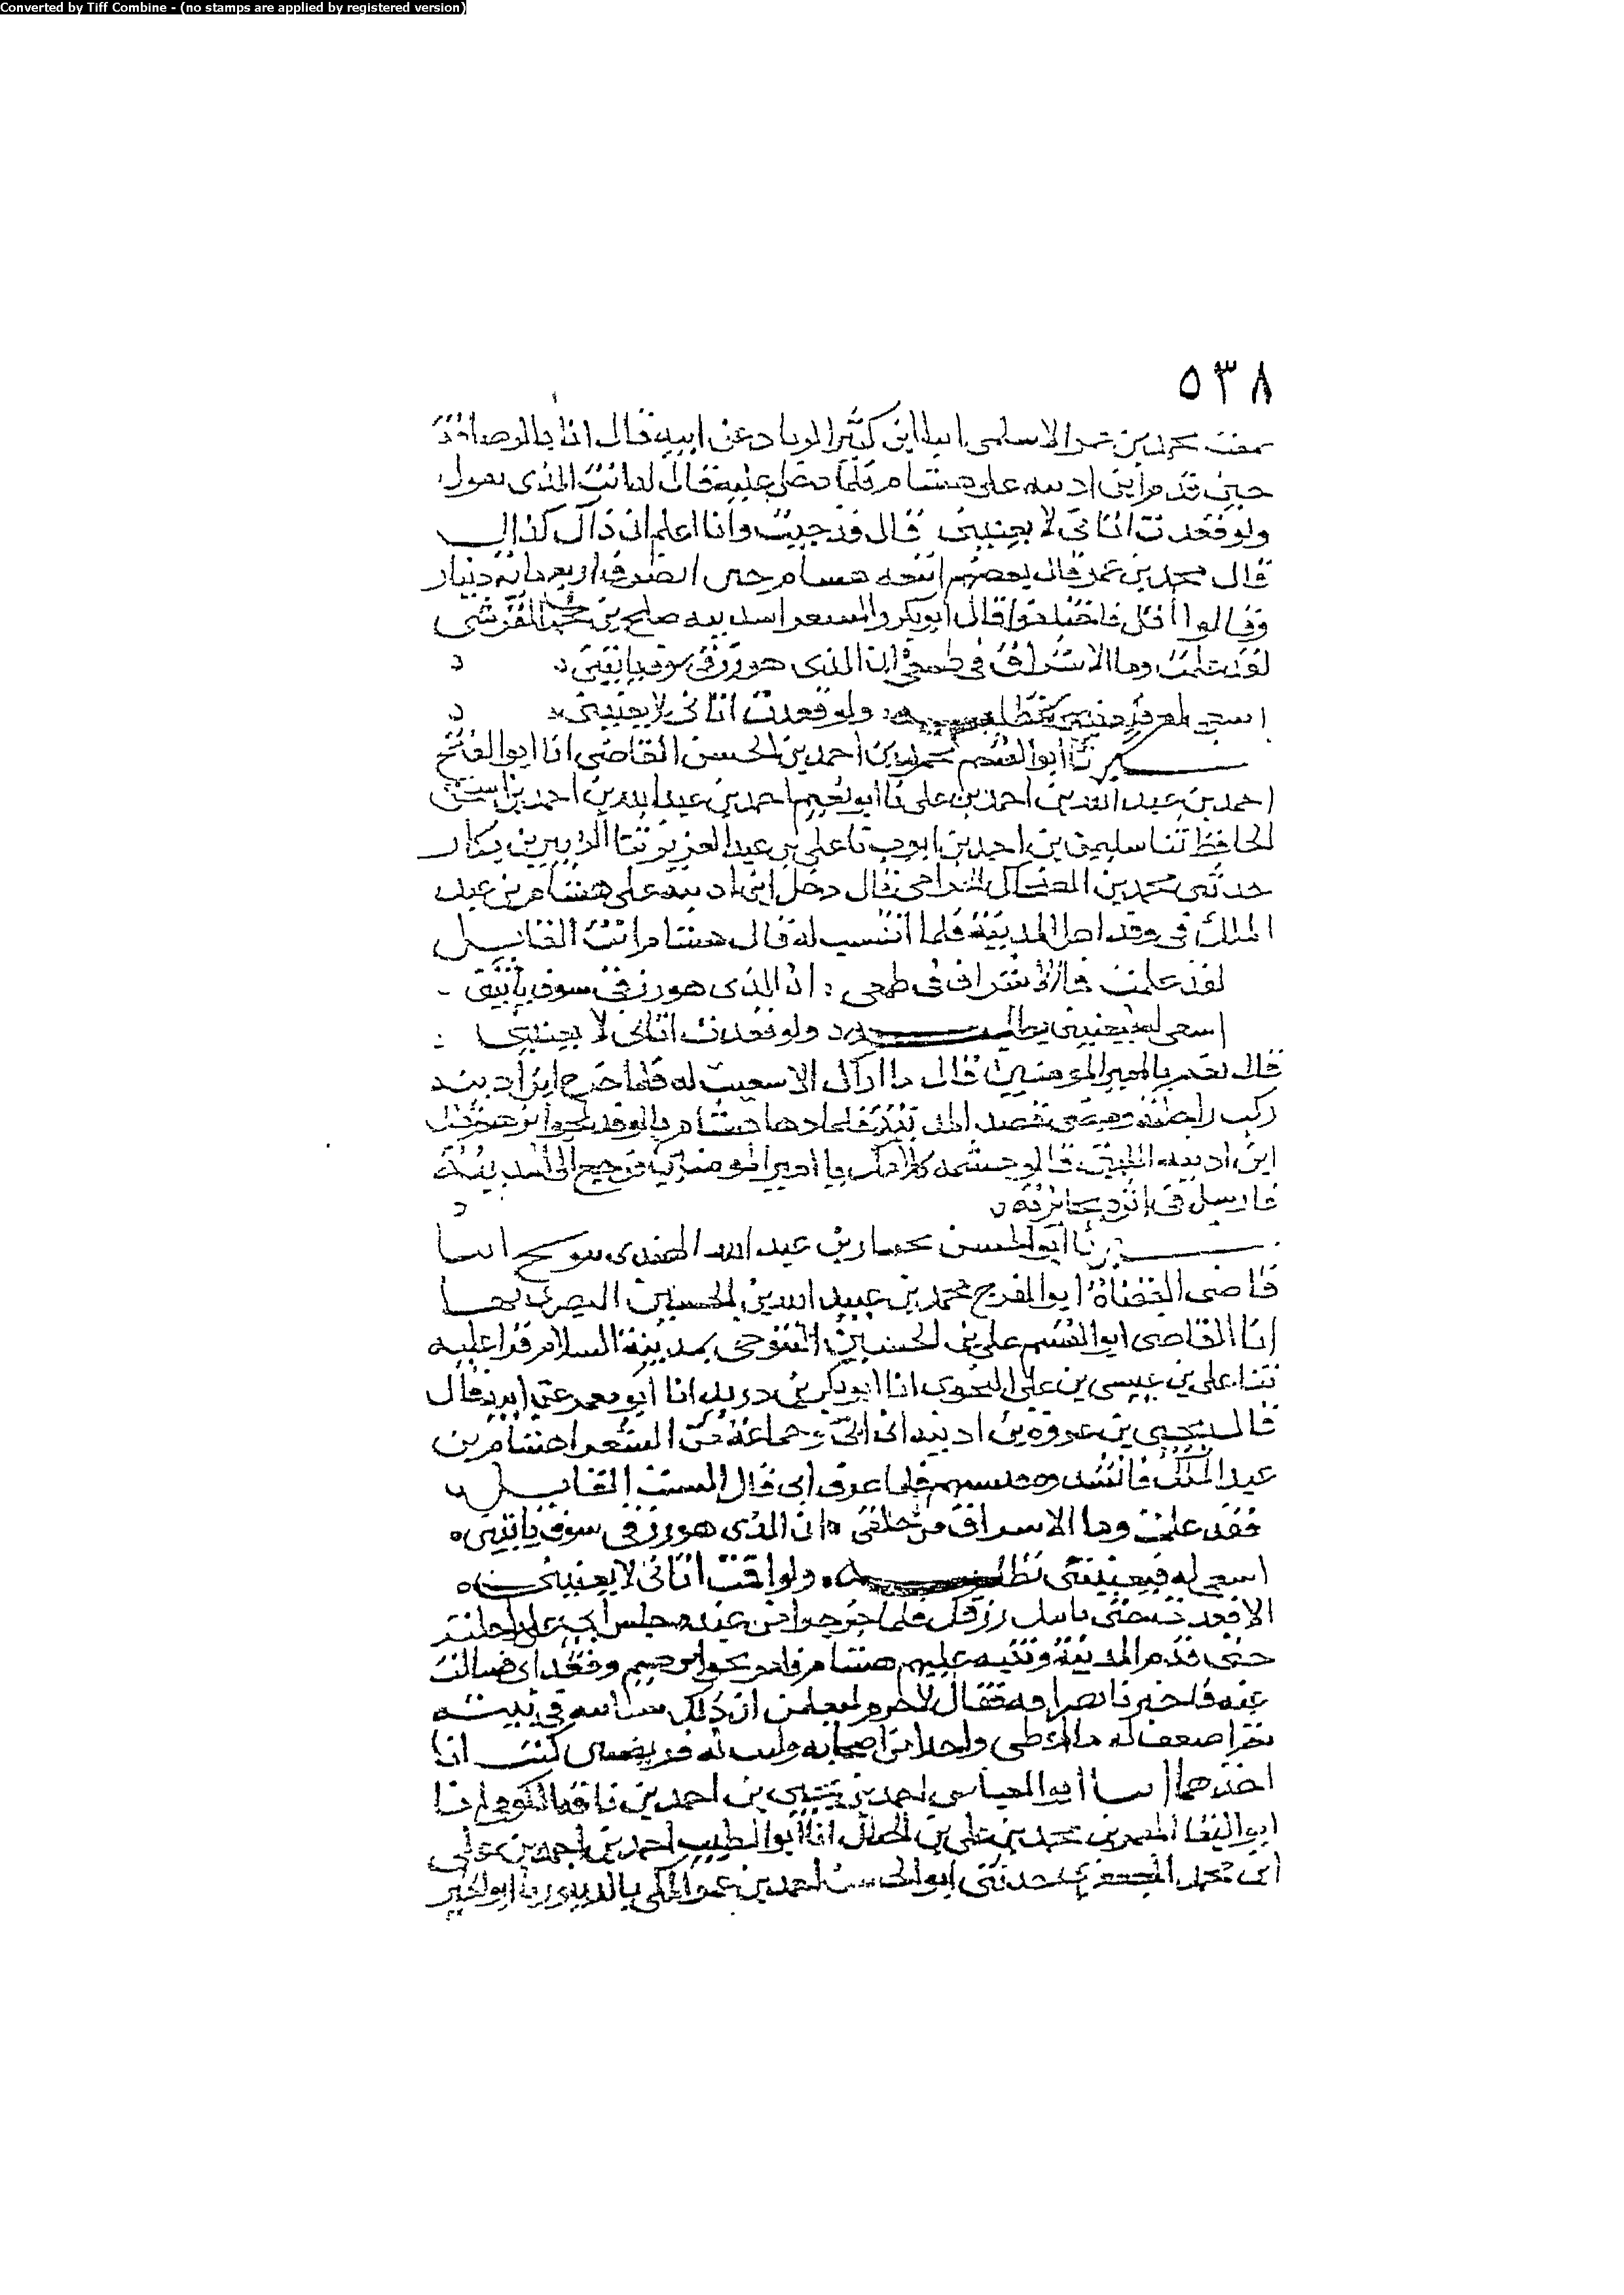 Converted by Tiff Combine - (no stamps are applied by registered version)
٥٣٨
محمد بن عمر الاسلمى ابن كثير عن ابيه قال انا بالرصافة
حين قدم ابن اذينه على هشام فلما دخل عليه قال له انت الذى يقول
ولو قعدت اتانى لا يعنينى قال وانا اعلم ان ذاك كذلك
قال محمد بن عمر فقال بعضهم هشام حين انصرف اربع مائة دينار
وقالوا اقل فاختلفوا قال ابو بكر والشعر صلح بن القرشى
لقد علمت وما الاشراف فى طمعى ان الذى هو رزقى سوف ياتينى
اسعى له فيعنينى تطلبه ولو قعدت اتانى لا يعنينى
نا ابو القسم محمود بن احمد بن الحسن القاضى انا ابو الفتح
احمد بن عبد الله بن احمد بن على نا ابو نعيم احمد بن عبد الله بن احمد بن اسحق
الحافظ ثنا سليمن بن احمد بن ايوب نا على بن عبد العزيز ثنا الزبير بن بكار
حدثنى محمد بن الضحاك الحزامى قال دخل ابن اذينه على هشام بن عبد
الملك فى وفد اهل المدينة فلما انتسب له قال هشام انت القايل
لقد علمت فما الاشراف فى طمعى ان الذى هو رزقى سوف ياتينى
اسعى له فيعنينى تطلبه ولو قعدت اتانى لا يعنينى
قال نعم يا امير المومنين قال ما اراك الا سعيت له فلما خرج ابن اذينه
ركب راحلته ومضى هشام بالوفد بجوايزهم فقال
ابن اذينه قالوا كلامك يا امير المومنين فرجع الى المدينة
فارسل فى اثره بجايزته
نا ابو الحسن بن عبد الله الهندى انا
قاضى القضاة ابو الفرج محمد بن عبيد الله بن الحسين البصرى بها
انا القاضى ابو القسم على بن الحسين التنوخى بمدينة السلام قرا عليه
ثنا على بن عيسى بن على النحوى انا ابو بكر بن دريد انا ابو معمر عن ابيه قال
قال يحيى بن عروة بن اذينه اتى ابى وجماعة من الشعرا هشام بن
عبد الملك فانشدوه فلما عرف ابى قال الست القايل
فقد علمت وما الاسراف من خلقى ان الذى هو رزقى سوف ياتينى
اسعى له فيعنينى تطلبه ولو اقمت اتانى لا يعنينى
الا قعدت حتى ياتيك رزقك فلما خرجوا من عنده جلس ابى على راحلته
حتى قدم المدينة وتنبه عليهم هشام فامر بجوايزهم وفقد ابى فسال
عنه فاخبر بانصرافه فقال لا جرم ليعلمن ان ذلك سياتيه فى بيته
ثم اضعف له ما اعطى واحدا من اصحابه وكتب له فريضتين كنت انا
اخذهما انا ابو العباس احمد بن يحيى بن احمد بن ناقة الكوفى انا
ابو البقا المعمر بن محمد بن على بن الحبال انا ابو الطيب احمد بن على
ابن محمد الجعفرى حدثنى ابو الحسن احمد بن عمر المكى بالدينور نا ابو الخير